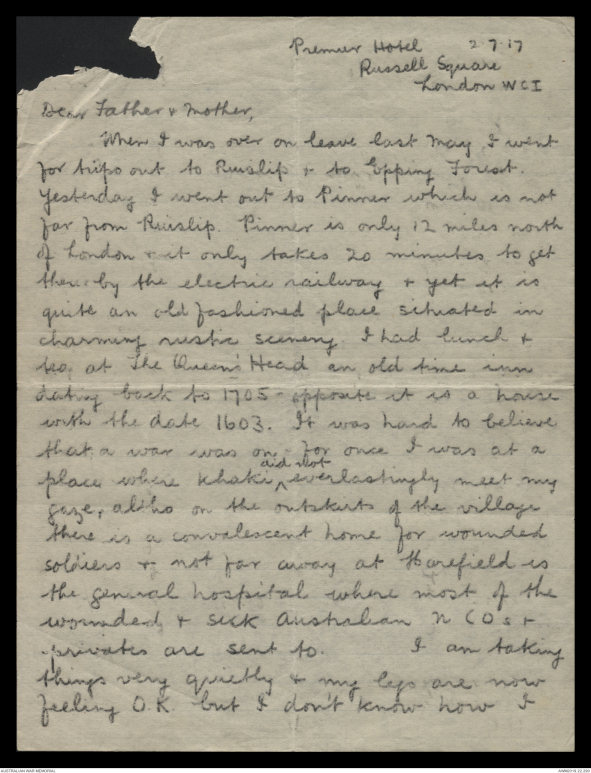 Premier Hotel 2.7.17
Russell Square
London WC1
Dear Father & Mother,
When I was over on leave last May I went
for trips out to Ruislip & to Epping Forest.
Yesterday I went out to Pinner which is not
far from Ruislip. Pinner is only 12 miles north
of London & it only takes 20 minutes to get
there by the electric railway & yet it is
quite an old fashioned place situated in
charming rustic scenery. I had lunch &
tea at The Queen's Head an old time inn
dating back to 1705 - opposite it is a house
with the date 1603. It was hard to believe
that a war was on, for once I was at a
place where khaki did not everlastingly meet my
gaze, altho on the outskirts of the village
there is a convalescent home for wounded
soldiers & not far away at Harefield is
the general hospital where most of the
wounded & sick Australian N C Os &
privates are sent to. I am taking
things very quietly & my legs are now
feeling O.K. but I don't know how I
AUSTRALIAN WAR MEMORIAL